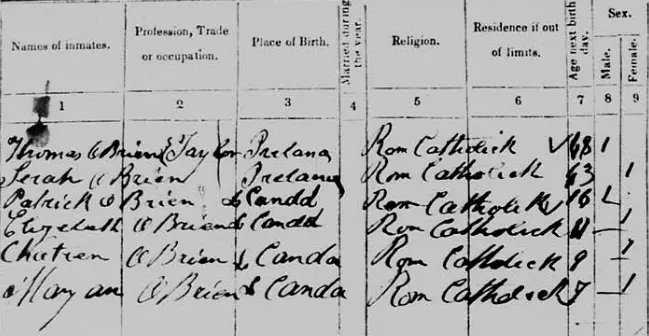 Names of inmates. Profession, Trade or occupation. Place of Birth. Married during the year. Religion. Residence if out of limits. Age next birth day. Sex. Male. Female.
1 2 3 4 5 6 7 8 9
Thomas O Brien Taylor Ireland Rom Catholick 68 1
Serah O Brien Ireland Rom Catholick 63 1
Patrick O Brien L Candd Rom Catholick 16
Elizebeth O Brien L Candd Rom Catholick 11 1
O Brien L Canda Rom Catholick 9 1
Maryan O Brien L Canda Rom Catholick 7 1